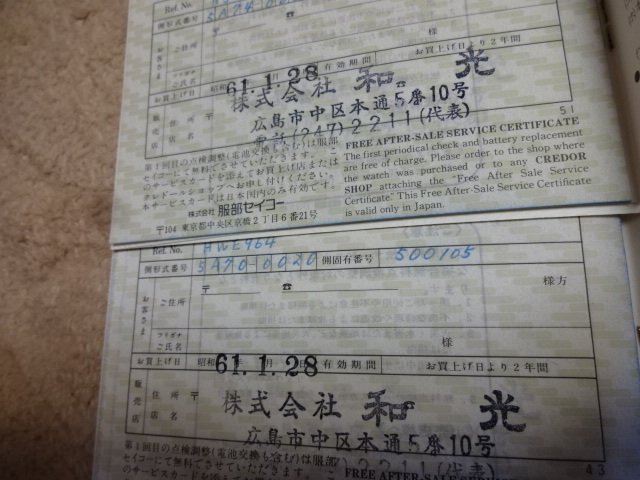 Ref. No.
側形式番号 5A74
お客さま
ご住所 〒 ☎
フリガナ
ご氏名 様
お買上げ日 昭和 61.1.28 有効期間 お買上げ日より2年間
販売店
住所 〒
店名
株式会社 和光
広島市中区本通5番10号
電話(247)2211(代表)
51
第1回目の点検調整(電池交換も含む)は服部
セイコーにて無料でさせていただきます。こ
のサービスカードを添えてお買上げ店または
クレドールショップへお申し付けください。
本サービスカードは日本国内のみ有効です。
株式会社 服部セイコー
〒104 東京都中央区京橋2丁目6番21号
FREE AFTER-SALE SERVICE CERTIFICATE
The first periodical check and battery replacement
are free of charge. Please order to the shop where
the watch was purchased or to any CREDOR
SHOP attaching the "Free After Sale Service
Certificate." This Free After-Sale Service Certificate
is valid only in Japan.
Ref. No. HWE964
側形式番号 5A70-0020 側固有番号 500105
お客さま
ご住所 〒 ☎ 様方
フリガナ
ご氏名 様
お買上げ日 昭和 61.1.28 月 日 有効期間 お買上げ日より2年間
販売店
住所 〒
店名
株式会社 和光
広島市中区本通5番10号
2211(代表)
43
第1回目の点検調整(電池交換も含む)は服部
セイコーにて無料でさせていただきます。こ
のサービスカードを添えてお買上げ店または
FREE AFTER-SALE SERVICE